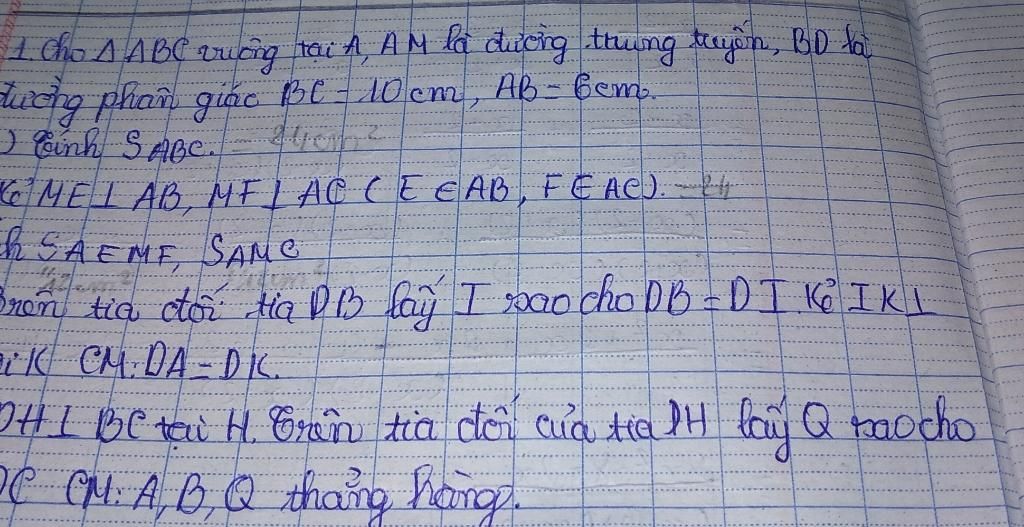 1. Cho Δ ABC vuông tại A, AM là đường trung tuyến, BD là
đường phân giác BC = 10 cm, AB = 6cm.
) Tính SABC. = 24cm²
Kẻ ME⊥ AB, MF⊥ AC ( E ∈ AB, F ∈ AC). = 24
h SAEMF, SAMC
12cm²
Trên tia đối tia DB lấy I sao cho DB = DI. Kẻ IK⊥
K CM: DA = DK.
DH⊥ BC tại H. Trên tia đối của tia DH lấy Q sao cho
DC CM: A, B, Q thẳng hàng.